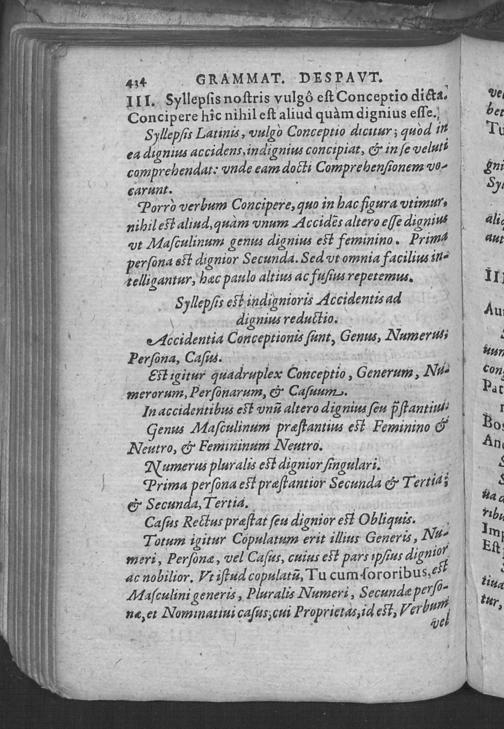 434 GRAMMAT. DESPAVT.
III. Syllepsis nostris vulgô est Conceptio dicta.
Concipere hîc nihil est aliud quàm dignius esse.
Syllepsis Latinis, vulgò Conceptio dicitur; quòd in
ea dignius accidens, indignius concipiat, & in se veluti
comprehendat: vnde eam docti Comprehensionem vo-
carunt.
Porrò verbum Concipere, quo in hac figura vtimur,
nihil est aliud, quàm vnum Accidēs altero esse dignius
vt Masculinum genus dignius est feminino. Prima
persona est dignior Secunda. Sed vt omnia facilius in-
telligantur, hæc paulo altius ac fusius repetemus.
Syllepsis est indignioris Accidentis ad
dignius reductio.
Accidentia Conceptionis sunt, Genus, Numerus,
Persona, Casus.
Est igitur quadruplex Conceptio, Generum, Nu-
merorum, Personarum, & Casuum.
In accidentibus est vnū altero dignius seu p̄stantius.
Genus Masculinum præstantius est Feminino &
Neutro, & Femininum Neutro.
Numerus pluralis est dignior singulari.
Prima persona est præstantior Secunda & Tertia;
& Secunda, Tertia.
Casus Rectus præstat seu dignior est Obliquis.
Totum igitur Copulatum erit illius Generis, Nu-
meri, Personæ, vel Casus, cuius est pars ipsius dignior
ac nobilior. Vt istud copulatū, Tu cum sororibus, est
Masculini generis, Pluralis Numeri, Secundæ perso-
næ, et Nominatiui casus; cui Proprietas, id est, Verbum
vel